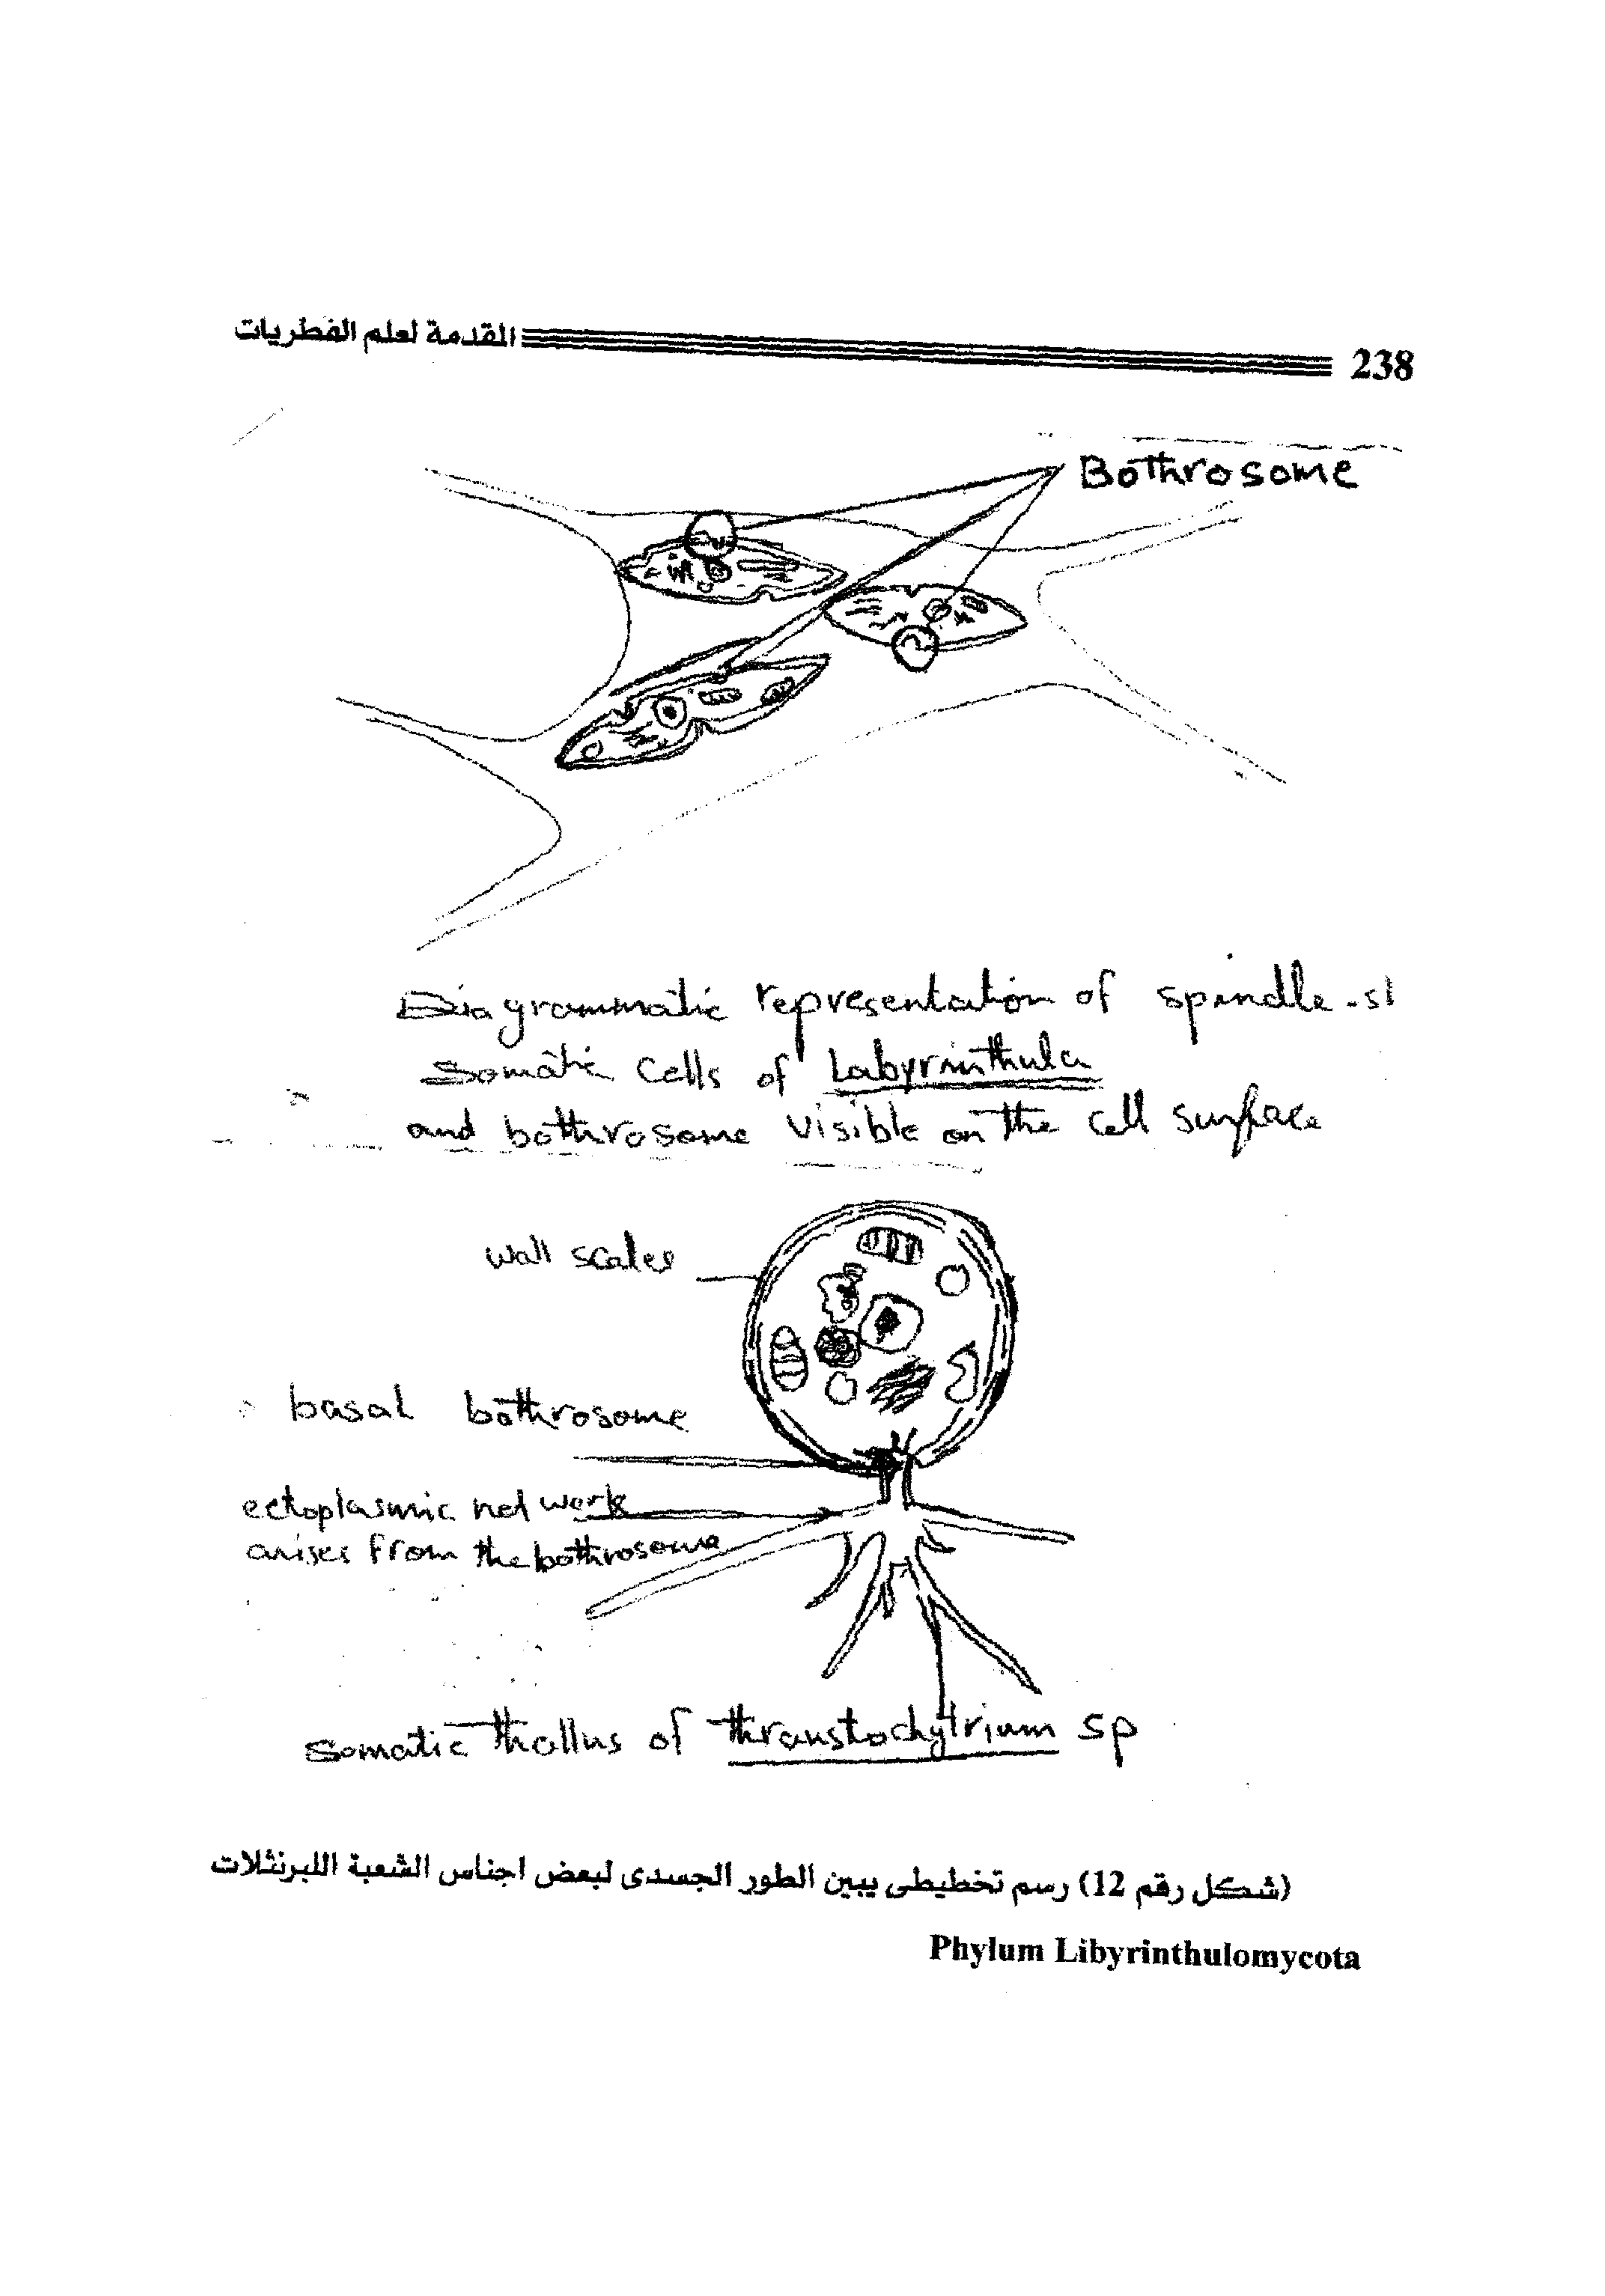 المقدمة لعلم الفطريات
238
Bothrosome
Diagrammatic representation of spindle-sl
Somatic Cells of Labyrinthula
and bothrosome visible on the cell surface
wall scales
basal bothrosome
ectoplasmic net work
arises from the bothrosome
Somatic thallus of thraustochytrium sp
(شكل رقم 12) رسم تخطيطى يبين الطور الجسدى لبعض اجناس الشعبة اللبرنثلات
Phylum Libyrinthulomycota